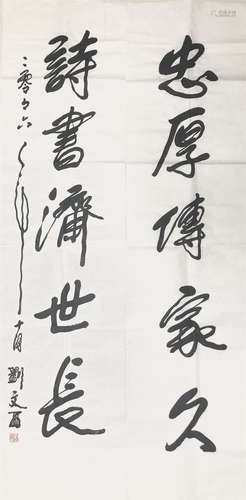 忠厚傳家久
詩書濟世長
二零零六年
十月
劉文西